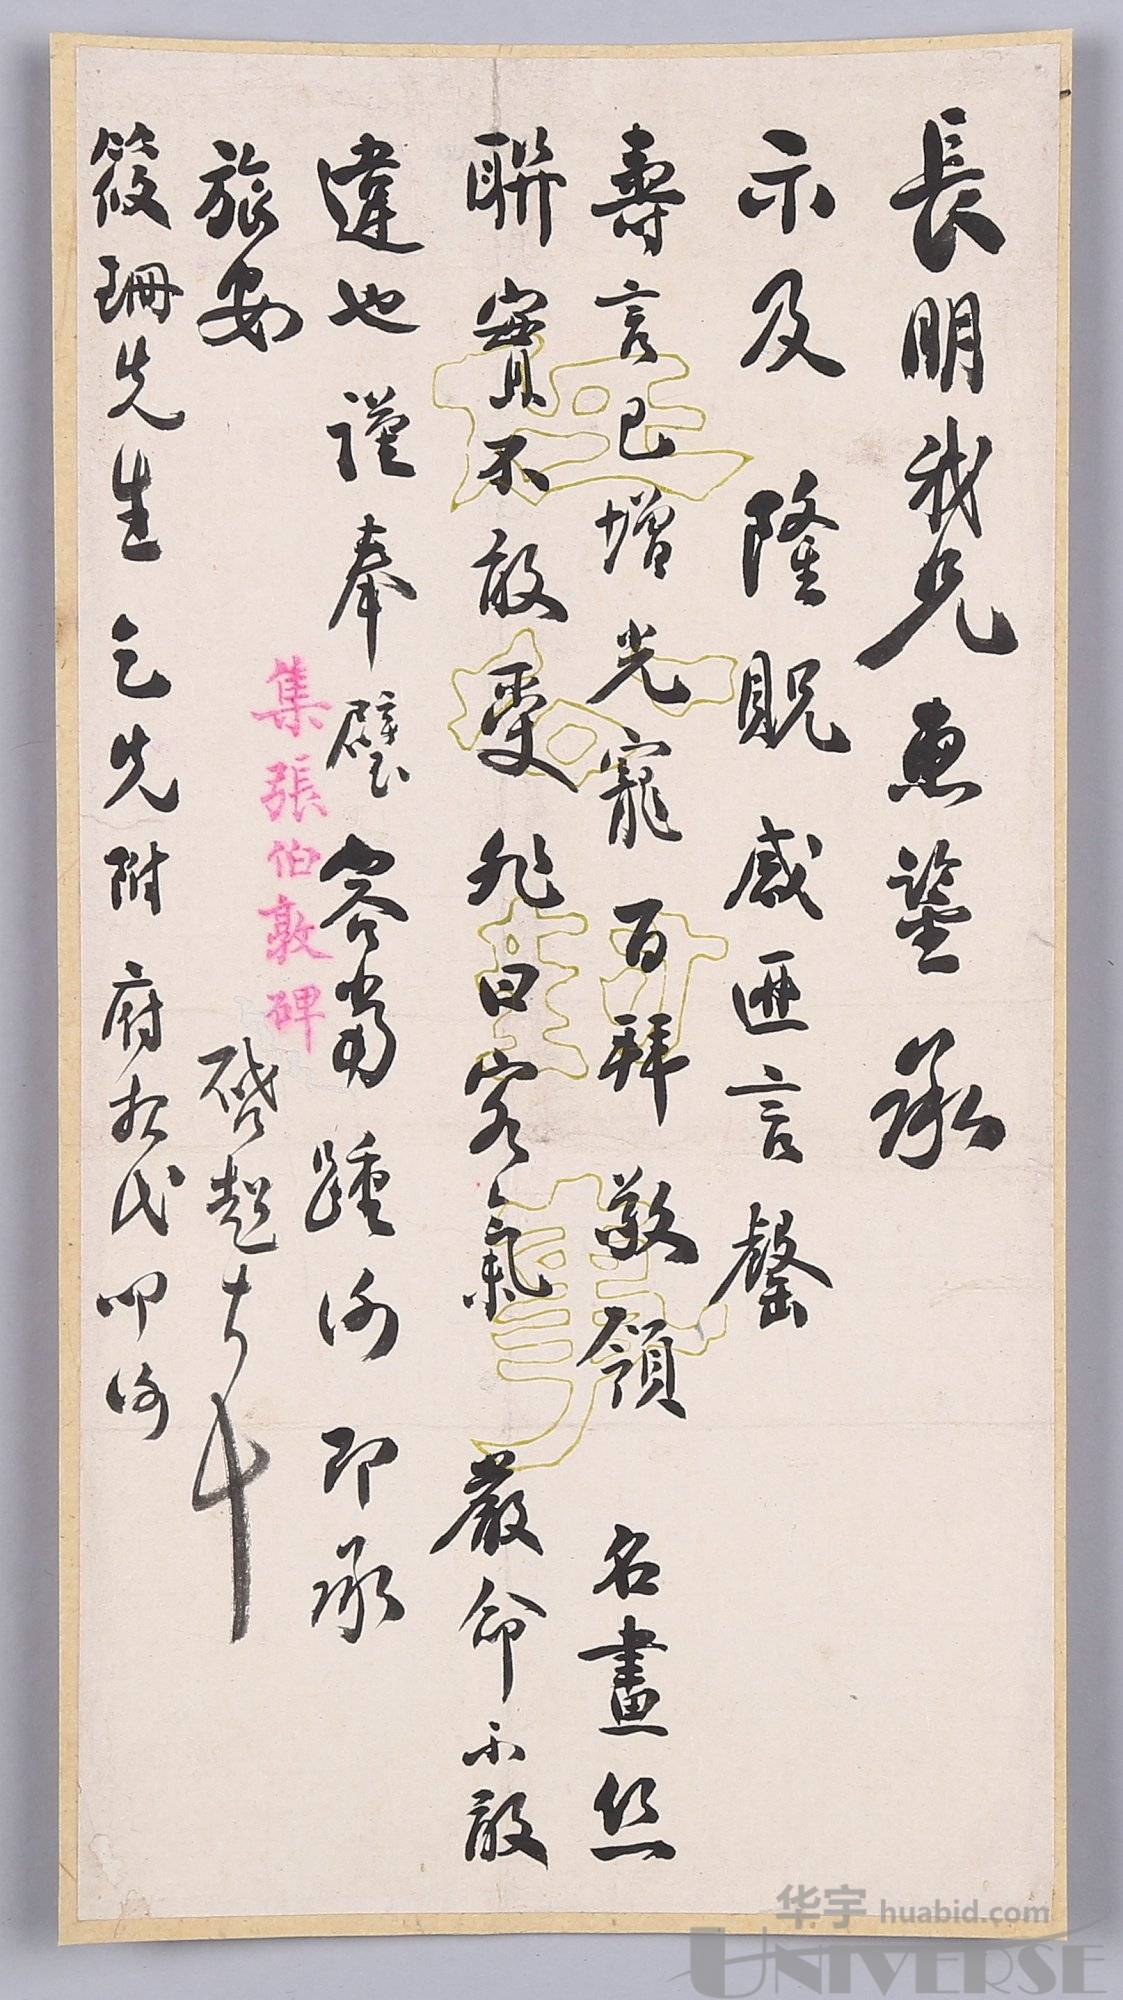 長明我兄惠鑒承
示及隆貺感匪言罄
壽言已增光寵百拜敬領名畫丝
聯實不敢受非曰客氣嚴命不敢
違也謹奉璧容當踵謝即承
旅安
啓超
筱珊先生乞先附府報代叩謝
集張伯敦碑
华宇 huabid.com
UNIVERSE